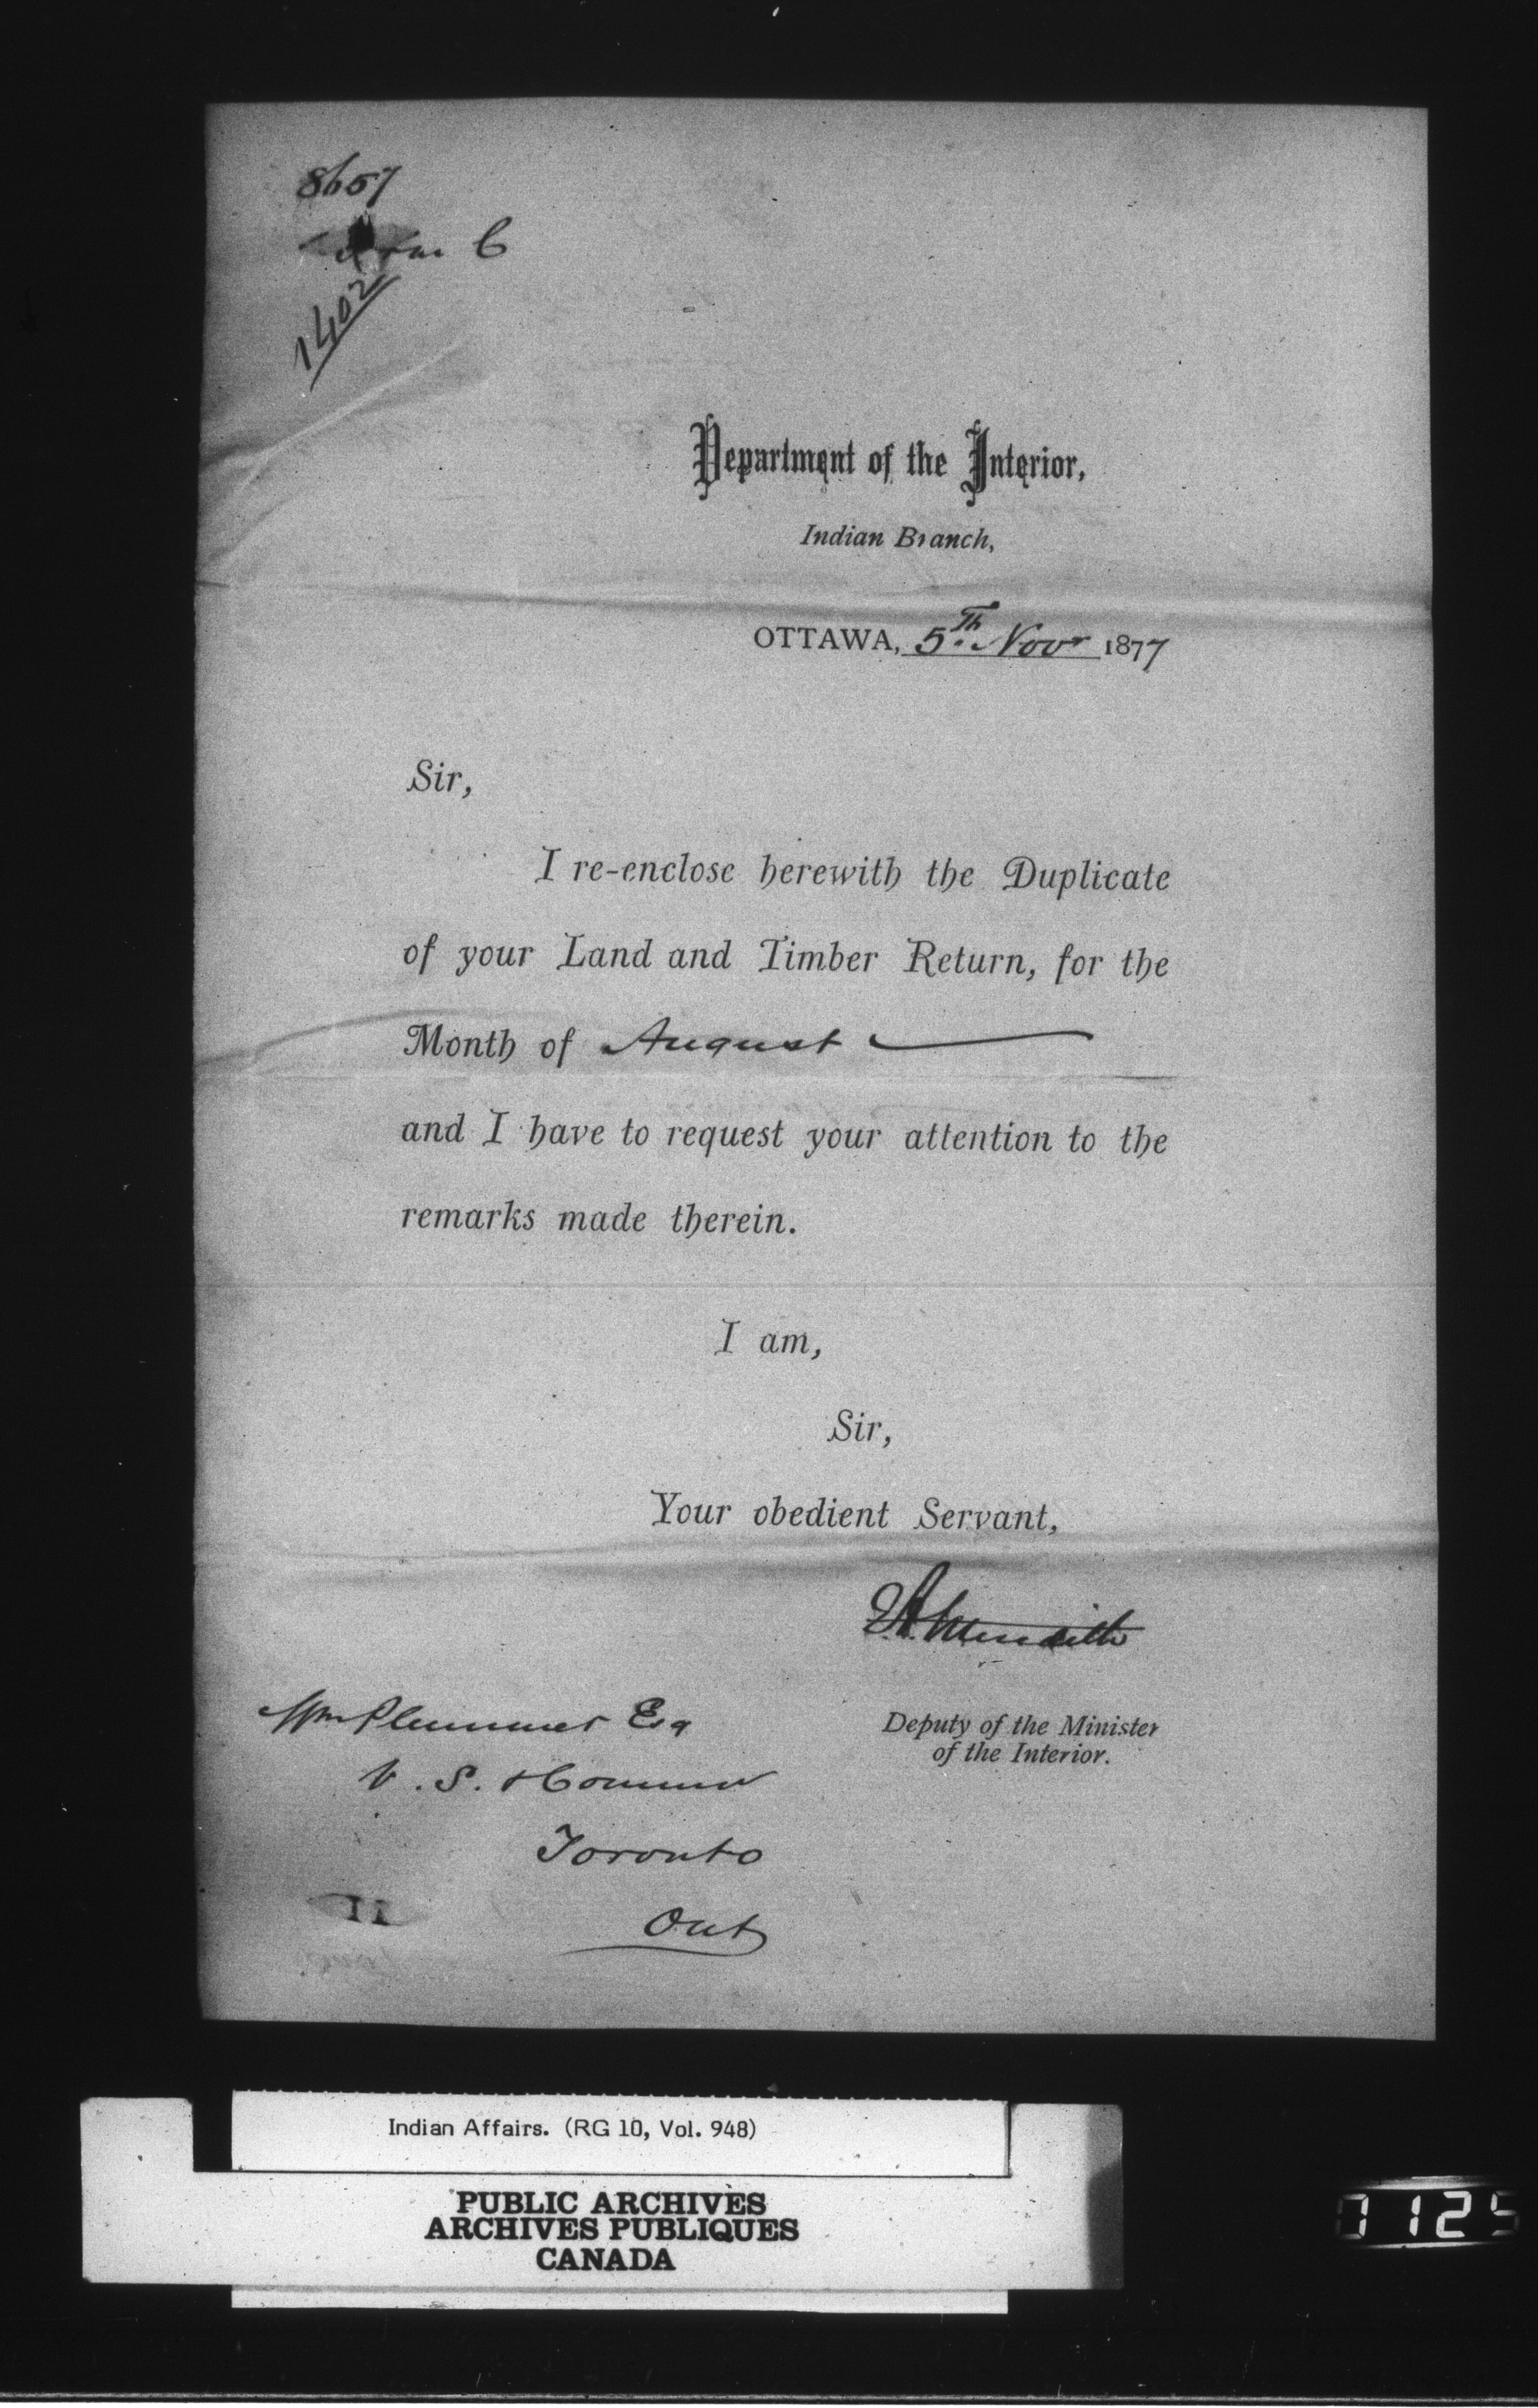 8657
C
1402
Department of the Interior,
Indian Branch,
OTTAWA, 5th. Novr 1877
Sir,
I re-enclose herewith the Duplicate
of your Land and Timber Return, for the
Month of August
and I have to request your attention to the
remarks made therein.
I am,
Sir,
Your obedient Servant,
E. A. Meredith
Deputy of the Minister
of the Interior.
Wm Plummer Esq
V. S. & Commr
Toronto
Ont
11
Indian Affairs. (RG 10, Vol. 948)
PUBLIC ARCHIVES
ARCHIVES PUBLIQUES
CANADA